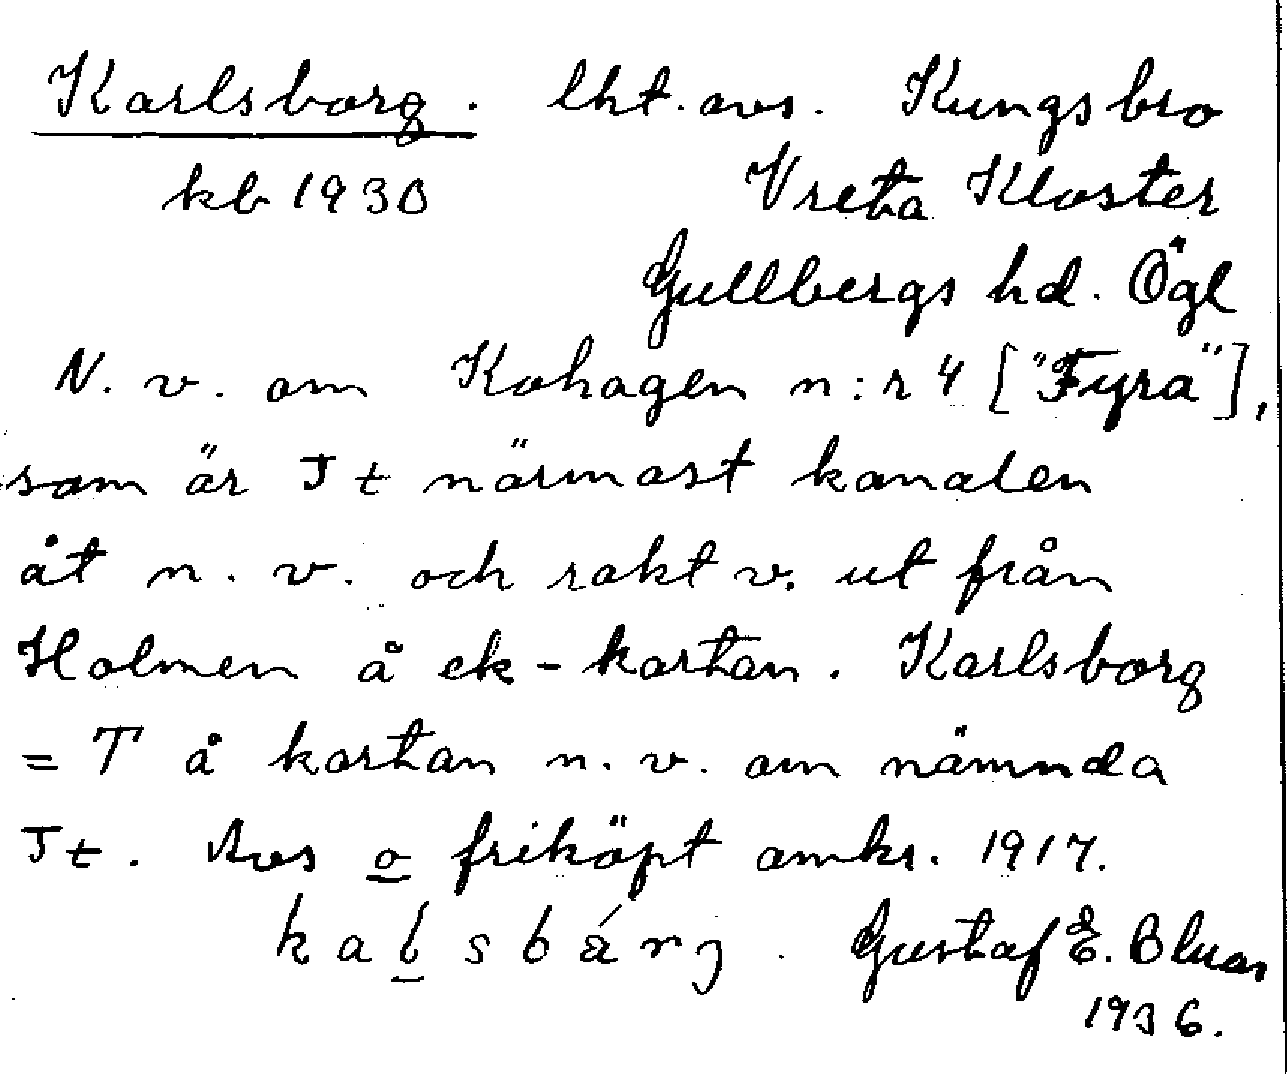 Karlsborg. lht. avs. Kungsbro
kb 1930 Vreta Kloster
Gullbergs hd. Ögl
N. v. om Kohagen n:r 4 ["Fyra"],
som är Jt närmast kanalen
åt n. v. och rakt v. ut från
Holmen å ek-kartan. Karlsborg
= T å kartan n. v. om nämnda
Jt. Avs o friköpt omkr. 1917.
Gustaf E.
1936.